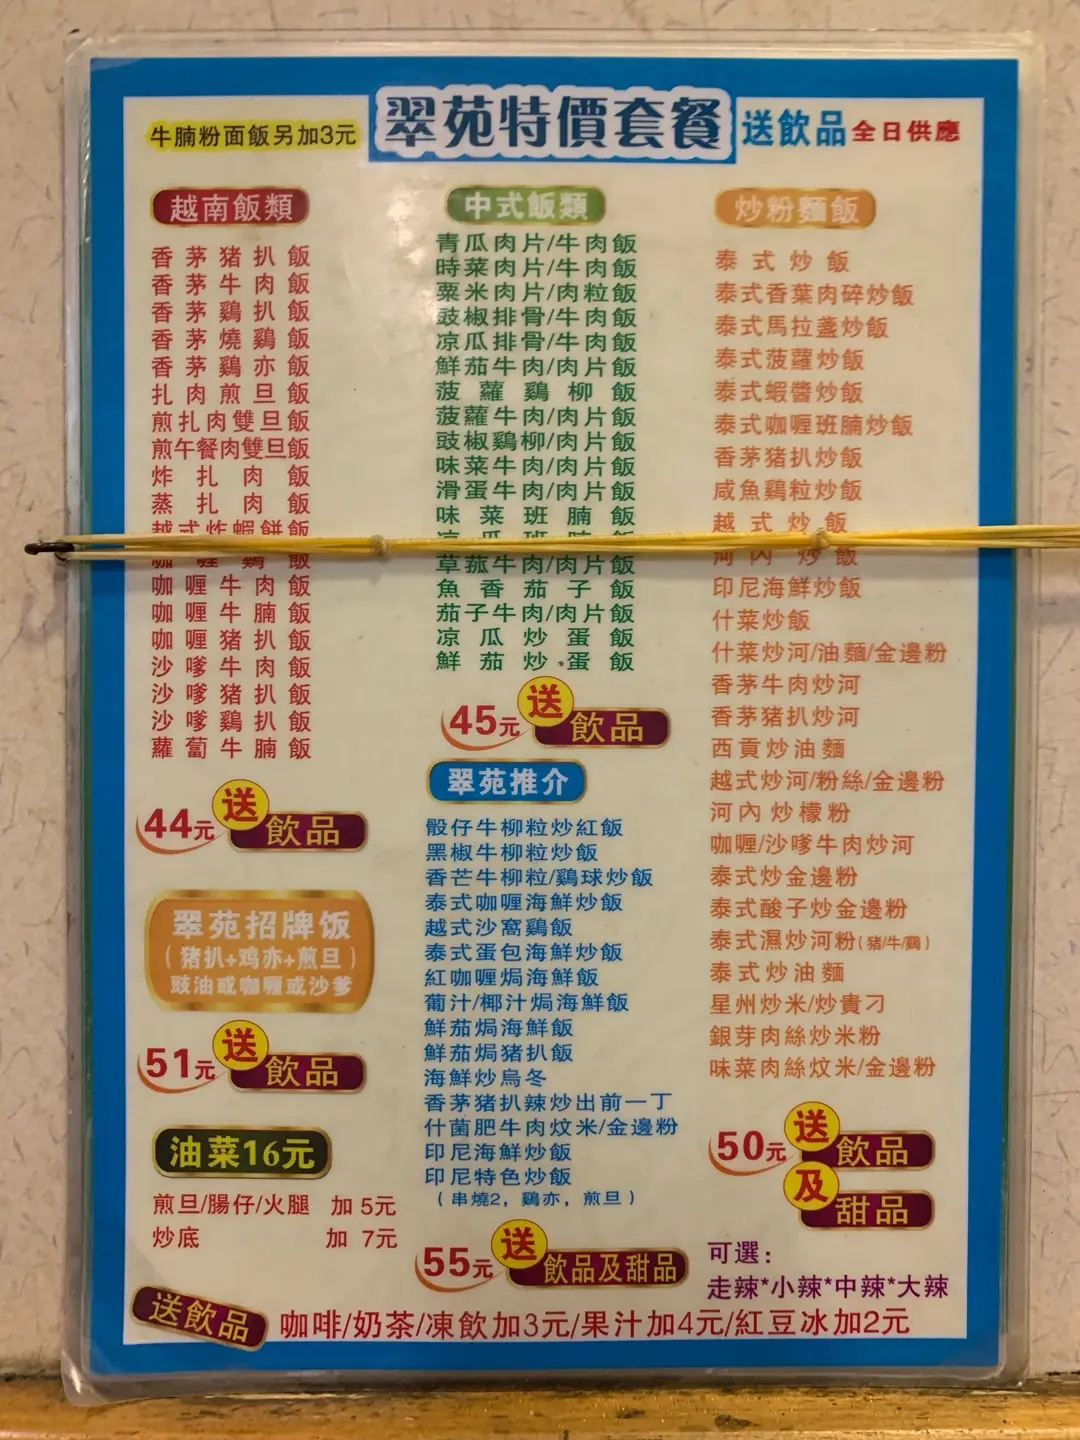 牛腩粉面飯另加3元
翠苑特價套餐
送飲品
全日供應
越南飯類
香茅猪扒飯
香茅牛肉飯
香茅鷄扒飯
香茅燒鷄飯
香茅鷄亦飯
扎肉煎旦飯
煎扎肉雙旦飯
煎午餐肉雙旦飯
炸扎肉飯
蒸扎肉飯
越式炸蝦餅飯
咖喱鷄飯
咖喱牛肉飯
咖喱牛腩飯
咖喱猪扒飯
沙嗲牛肉飯
沙嗲猪扒飯
沙嗲鷄扒飯
蘿蔔牛腩飯
44元
送
飲品
翠苑招牌饭
(猪扒+鸡亦+煎旦)
豉油或咖喱或沙爹
51元
送
飲品
油菜16元
煎旦/腸仔/火腿 加 5元
炒底 加 7元
中式飯類
青瓜肉片/牛肉飯
時菜肉片/牛肉飯
粟米肉片/肉粒飯
豉椒排骨/牛肉飯
凉瓜排骨/牛肉飯
鮮茄牛肉/肉片飯
菠蘿鷄柳飯
菠蘿牛肉/肉片飯
豉椒鷄柳/肉片飯
味菜牛肉/肉片飯
滑蛋牛肉/肉片飯
味菜班腩飯
瓜班飯
草菰牛肉/肉片飯
魚香茄子飯
茄子牛肉/肉片飯
凉瓜炒蛋飯
鮮茄炒蛋飯
45元
送
飲品
翠苑推介
骰仔牛柳粒炒紅飯
黑椒牛柳粒炒飯
香芒牛柳粒/鷄球炒飯
泰式咖喱海鮮炒飯
越式沙窩鷄飯
泰式蛋包海鮮炒飯
紅咖喱焗海鮮飯
葡汁/椰汁焗海鮮飯
鮮茄焗海鮮飯
鮮茄焗猪扒飯
海鮮炒烏冬
香茅猪扒辣炒出前一丁
什菌肥牛肉炆米/金邊粉
印尼海鮮炒飯
印尼特色炒飯
(串燒2，鷄亦，煎旦)
55元
送
飲品及甜品
炒粉麵飯
泰式炒飯
泰式香葉肉碎炒飯
泰式馬拉盞炒飯
泰式菠蘿炒飯
泰式蝦醬炒飯
泰式咖喱班腩炒飯
香茅猪扒炒飯
咸魚鷄粒炒飯
越式炒飯
河內炒飯
印尼海鮮炒飯
什菜炒飯
什菜炒河/油麵/金邊粉
香茅牛肉炒河
香茅猪扒炒河
西貢炒油麵
越式炒河/粉絲/金邊粉
河內炒檬粉
咖喱/沙嗲牛肉炒河
泰式炒金邊粉
泰式酸子炒金邊粉
泰式濕炒河粉(猪/牛/鷄)
泰式炒油麵
星州炒米/炒貴刁
銀芽肉絲炒米粉
味菜肉絲炆米/金邊粉
50元
送
飲品
及
甜品
可選：
走辣*小辣*中辣*大辣
送飲品
咖啡/奶茶/凍飲加3元/果汁加4元/紅豆冰加2元